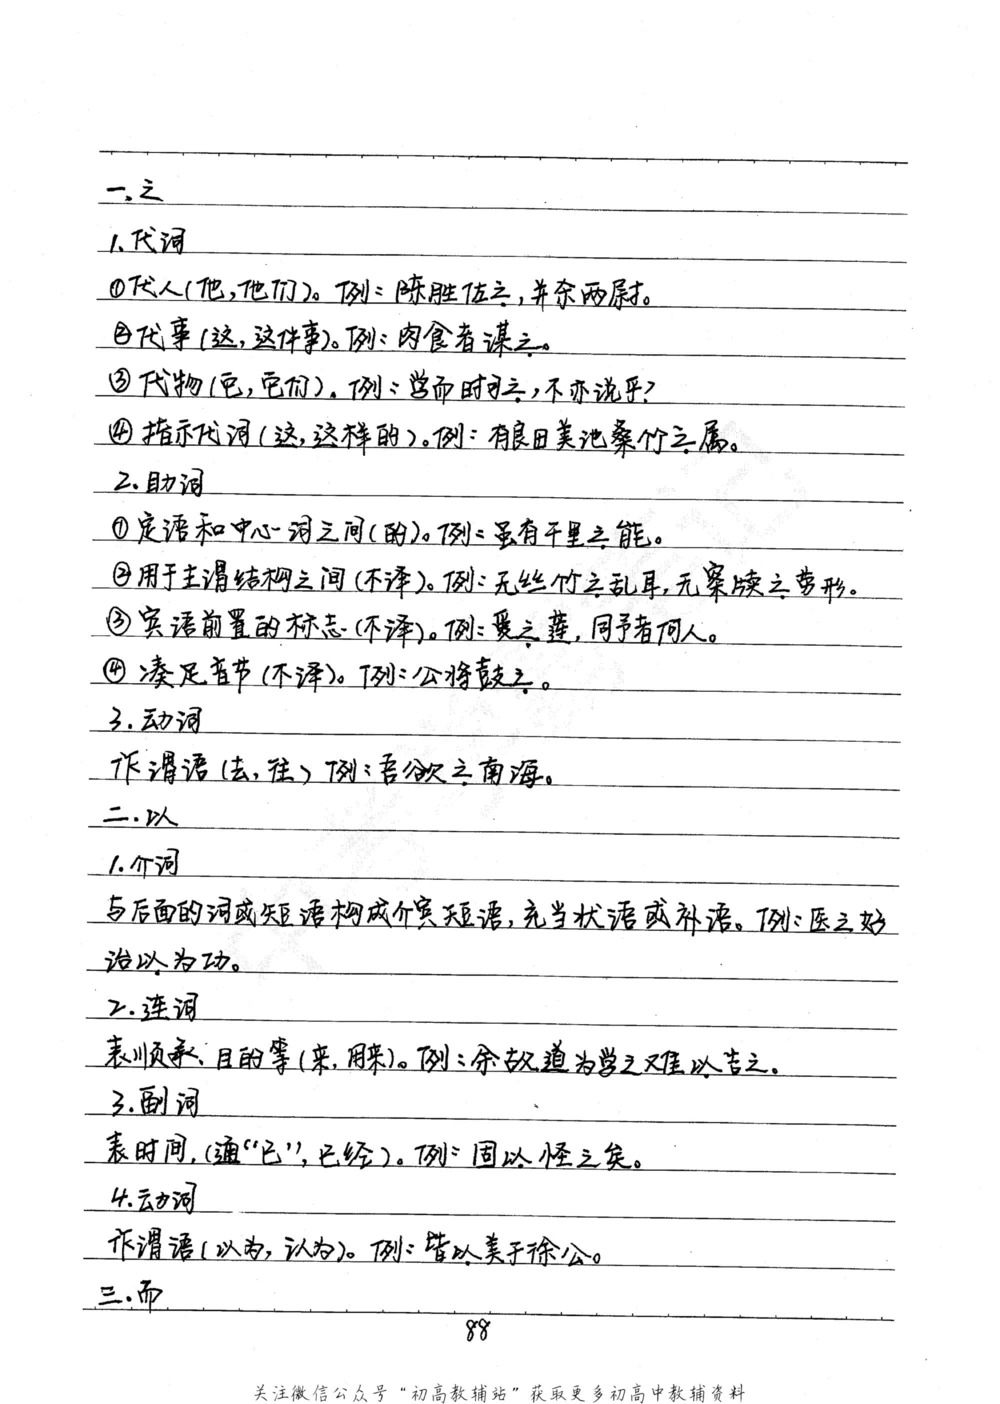 一.之
1.代词
①代人(他,他们)。例:陈胜佐之,并杀两尉。
②代事(这,这件事)。例:肉食者谋之。
③代物(它,它们)。例:学而时习之,不亦说乎?
④指示代词(这,这样的)。例:有良田美池桑竹之属。
2.助词
①定语和中心词之间(的)。例:虽有千里之能。
②用于主谓结构之间(不译)。例:无丝竹之乱耳,无案牍之劳形。
③宾语前置的标志(不译)。例:爱之莲,同予者何人。
④凑足音节(不译)。例:公将鼓之。
3.动词
作谓语(去,往)例:吾欲之南海。
二.以
1.介词
与后面的词或短语构成介宾短语,充当状语或补语。例:医之好
治以为功。
2.连词
表顺承、目的等(来,用来)。例:余故道为学之难以告之。
3.副词
表时间,(通“已”,已经)。例:固以怪之矣。
4.动词
作谓语(以为,认为)。例:皆以美于徐公。
三.而
88
关注微信公众号“初高教辅站”获取更多初高中教辅资料